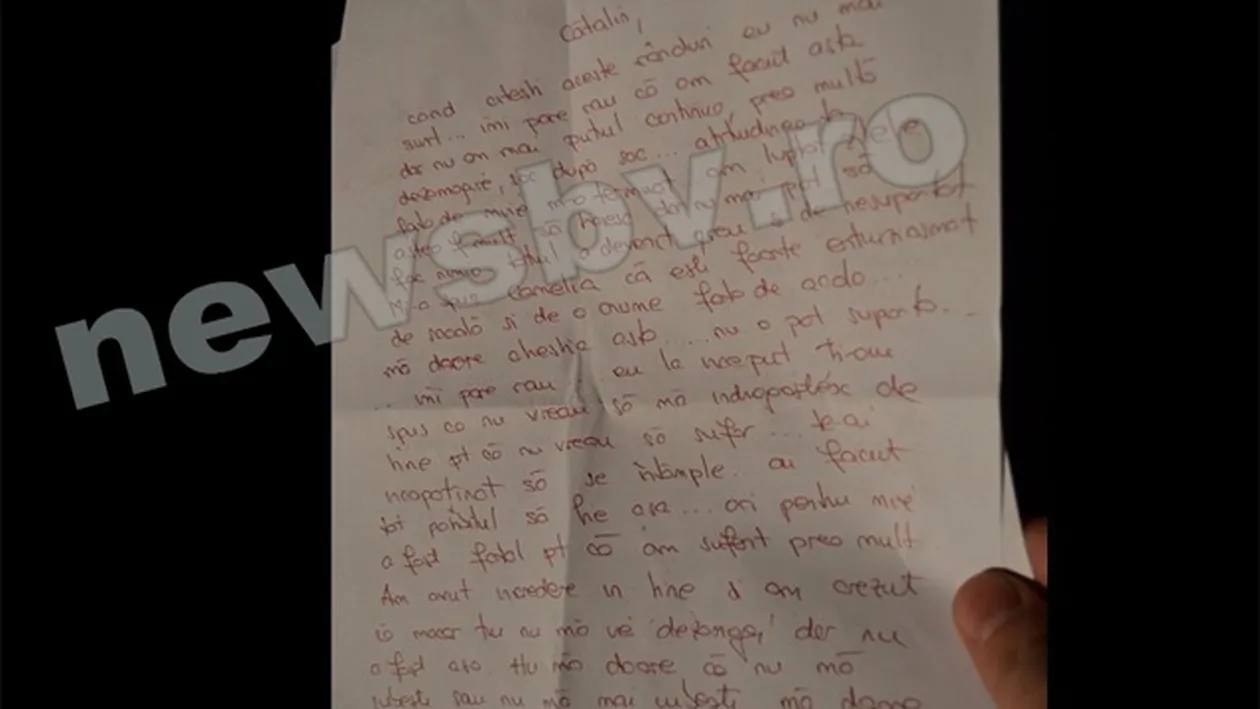 Cătălin,
cand citesti aceste rânduri eu nu mai
sunt... imi pare rau că am facut asta
dar nu am mai putut continua, prea multă
dezamagire, soc după soc... atitudinea ta
fata de mine m-a terminat am luptat zile
astea mult să traiesc dar nu mai pot să
fac nimic totul a devenit greu si de nesuportat
M-a spus Camelia că esti foarte
de scoală si de o anume fata de acolo...
mă doare chestia asta.... nu o pot suporta...
.. imi pare rau... eu la nceput ti-am
spus ca nu vreau să mă indragostesc de
tine pt că nu vreau să sufar... te-ai
ncapatinat să se ntâmple. ai facut
tot posibilul să fie asa... ori pentru mine
a fost fatal pt că am suferit prea mult
Am avut ncredere in tine si am crezut
că macar tu nu mă vei dezamagi, dar nu
a fost asa. Mă doare că nu mă
iubesti sau nu mă mai iubesti mă doare
newsbv.ro